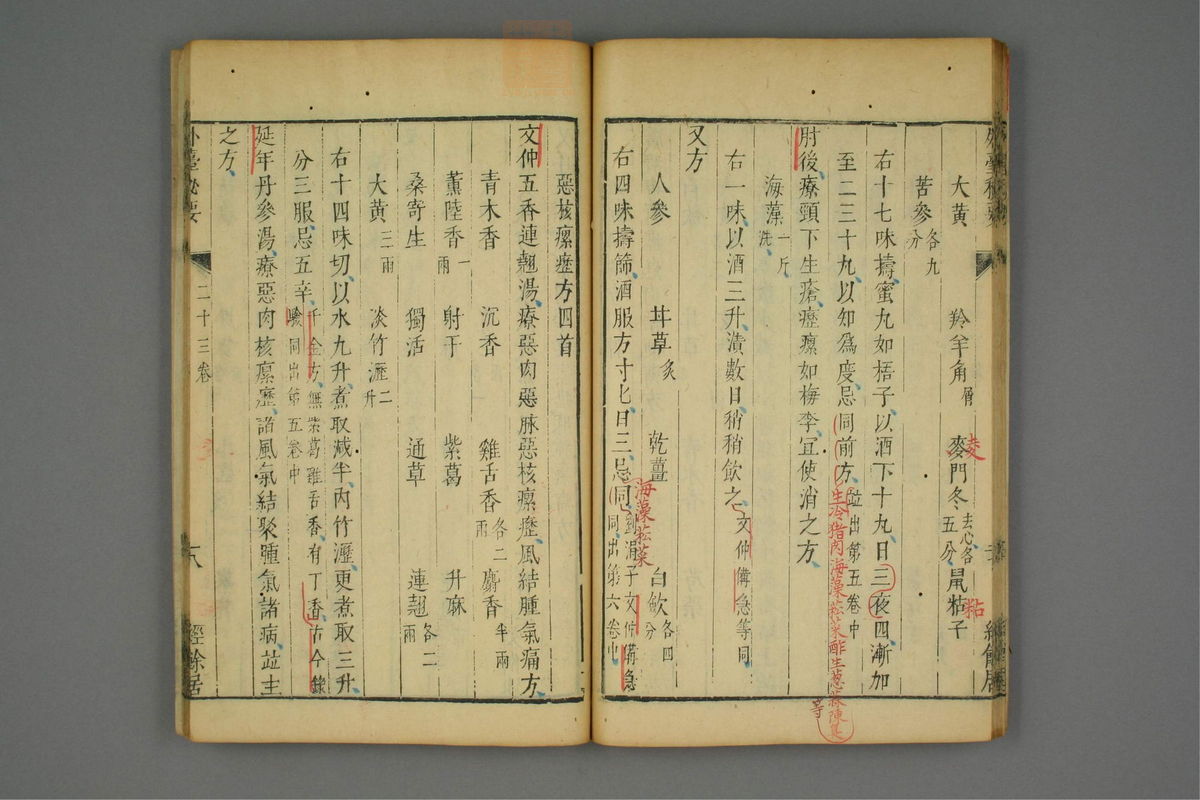 大黃 羚羊角屑 麥門冬去心各五分 鼠粘子
苦參各九分
右十七味擣蜜丸如梧子以酒下十九日三夜四漸加
至二三十九以知爲度忌同前方並出第五卷中
生冷猪肉海藻菘菜酢生葱蒜陳臭等
肘後療頸下生瘡瘰癧如梅李宜使消之方
海藻一斤洗
右一味以酒三升漬數日稍稍飲之文仲備急等同
又方
人參 甘草炙 乾薑 白斂各四分
右四味擣篩酒服方寸匕日三忌同劉涓子文仲備急同出第六卷中
海藻菘菜
惡核瘰癧方四首
文仲五香連翹湯療惡肉惡脉惡核瘰癧風結腫氣痛方
青木香 沉香 雞舌香各二兩 麝香半兩
薰陸香一兩 射干 紫葛 升麻
桑寄生 獨活 通草 連翹各二兩
大黃三兩 淡竹瀝二升
右十四味切以水九升煮取減半內竹瀝更煮取三升
分三服忌五辛千金方無紫葛雞舌香有丁香古今錄驗同出第五卷中
延年丹參湯療惡肉核瘰癧諸風氣結聚腫氣諸病並主
之方
外臺秘要 二十三卷 十八 經餘居